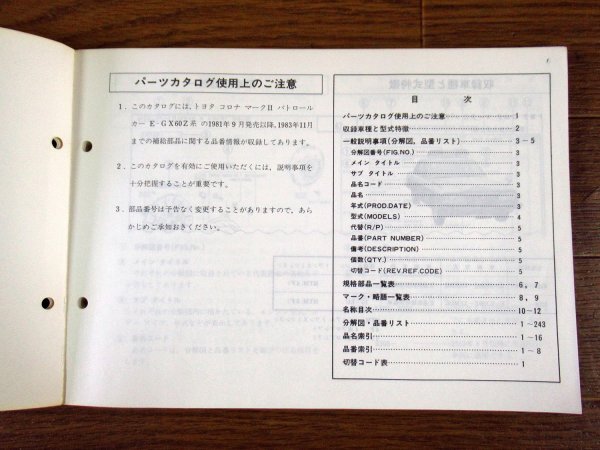 パーツカタログ使用上のご注意
1．このカタログには，トヨタ コロナ マークII パトロール
カー E-GX60Z系 の1981年9月発売以降，1983年11月
までの補給部品に関する品番情報が収録してあります。
2．このカタログを有効にご使用いただくには，説明事項を
十分把握することが重要です。
3．部品番号は予告なく変更することがありますので，あら
かじめご承知おきください。
目 次
パーツカタログ使用上のご注意 1
収録車種と型式特徴 2
一般説明事項(分解図，品番リスト) 3－5
分解図番号(FIG.NO.) 3
メイン タイトル 3
サブ タイトル 3
品名コード 3
品名 3
年式(PROD.DATE) 3
型式(MODELS) 4
代替(R/P) 5
品番(PART NUMBER) 5
備考(DESCRIPTION) 5
個数(QTY.) 5
切替コード(REV.REF.CODE) 5
規格部品一覧表 6，7
マーク・略語一覧表 8，9
名称目次 10－12
分解図・品番リスト 1－243
品名索引 1－16
品番索引 1－8
切替コード表 1